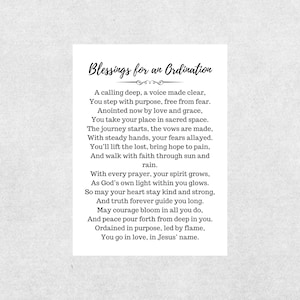 Blessings for an Ordination
A calling deep, a voice made clear,
You step with purpose, free from fear.
Anointed now by love and grace,
You take your place in sacred space.
The journey starts, the vows are made,
With steady hands, your fears allayed.
You'll lift the lost, bring hope to pain,
And walk with faith through sun and
rain.
With every prayer, your spirit grows,
As God's own light within you glows.
So may your heart stay kind and strong,
And truth forever guide you long.
May courage bloom in all you do,
And peace pour forth from deep in you.
Ordained in purpose, led by flame,
You go in love, in Jesus' name.